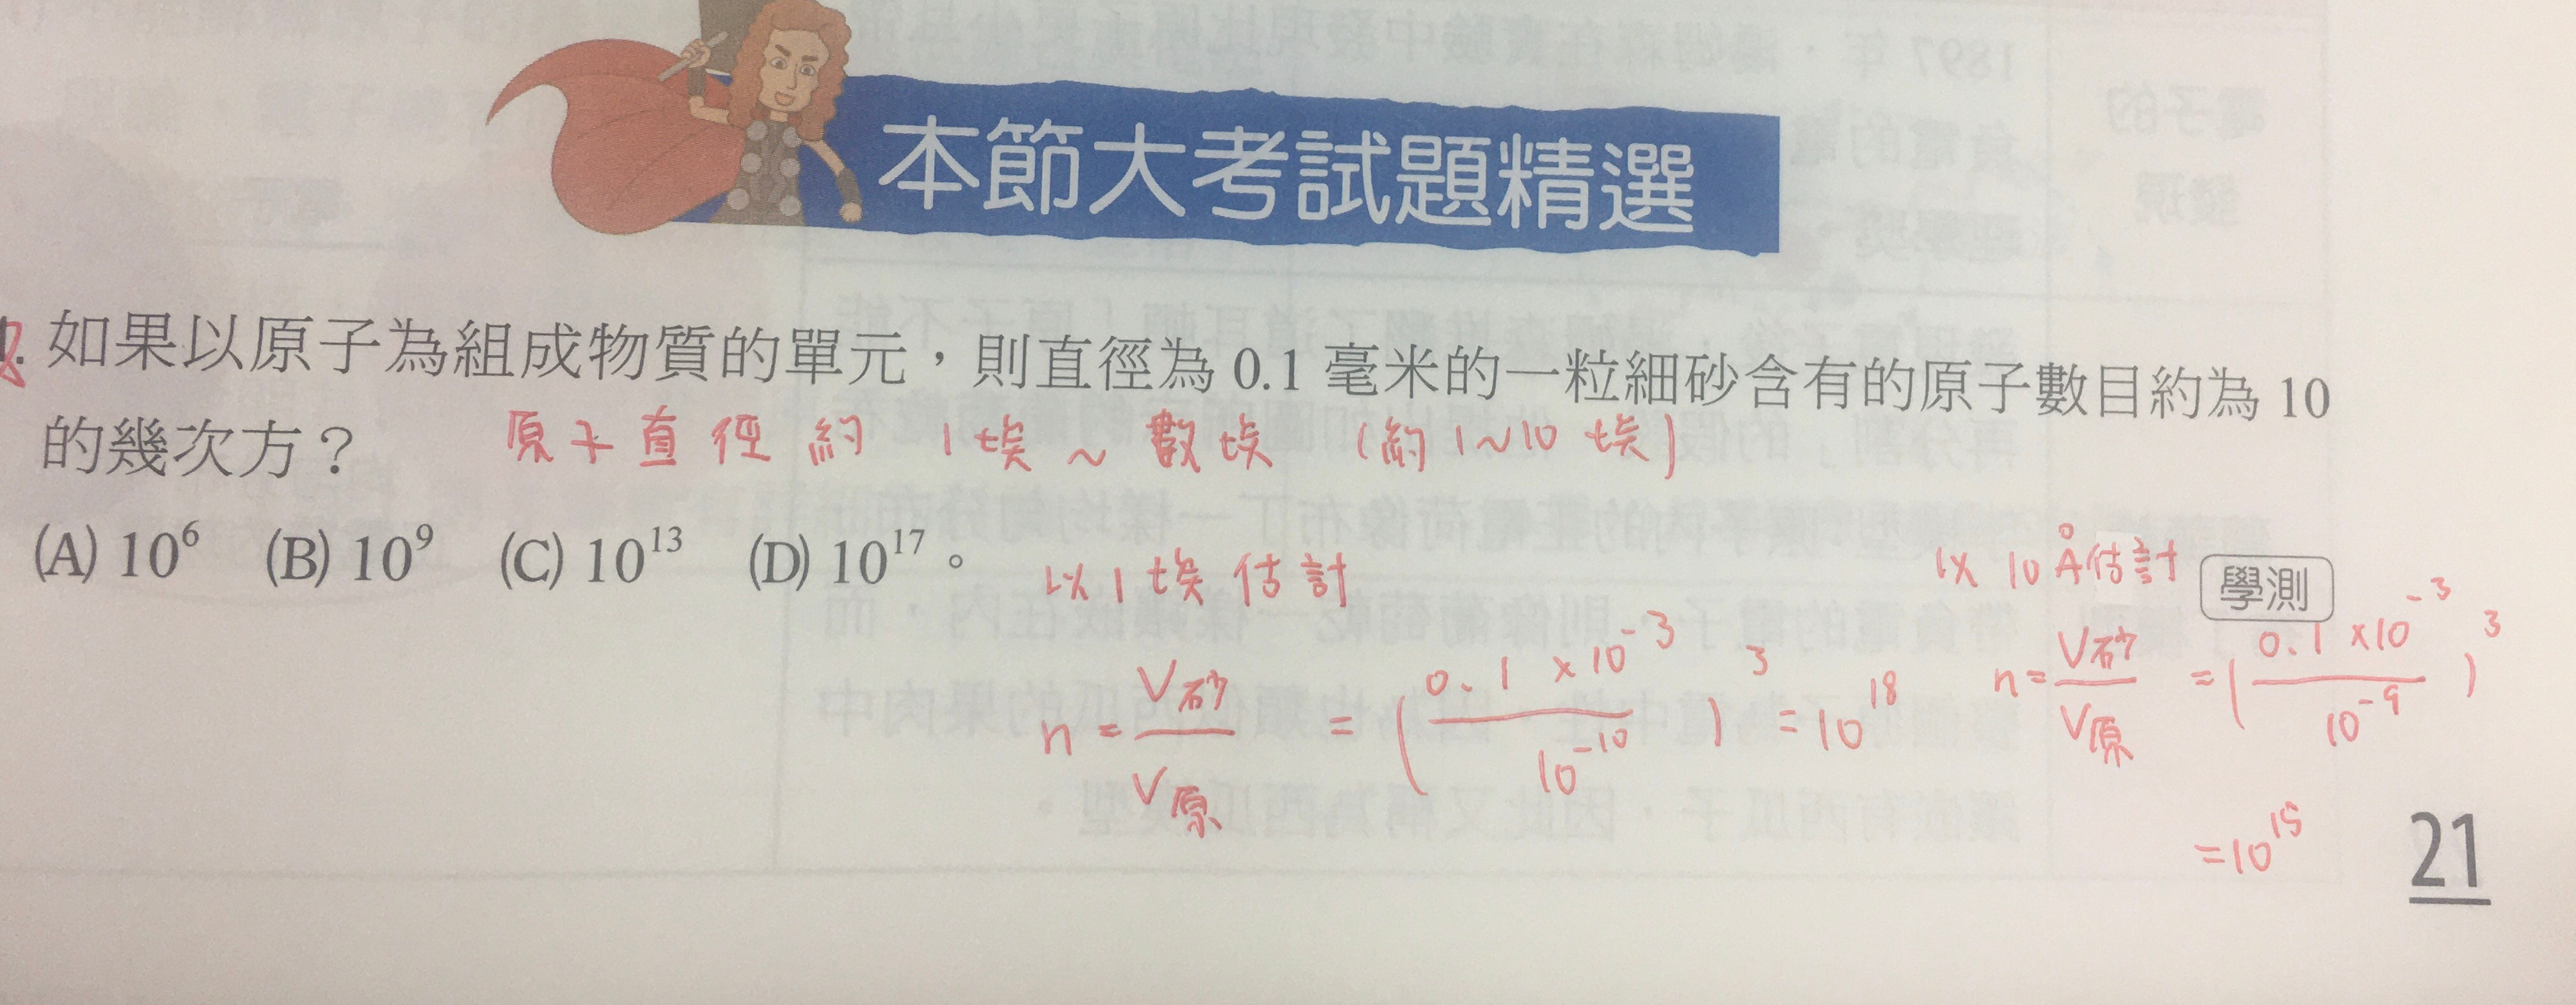 本節大考試題精選
1. 如果以原子為組成物質的單元，則直徑為 0.1 毫米的一粒細砂含有的原子數目約為 10
的幾次方？
原子直徑約 1埃~數埃 (約1~10埃)
(A) 10⁶ (B) 10⁹ (C) 10¹³ (D) 10¹⁷。
學測
以1埃估計
n = V砂/V原 = (0.1×10⁻³/10⁻¹⁰)³ = 10¹⁸
以10Å估計
n = V砂/V原 = (0.1×10⁻³/10⁻⁹)³
= 10¹⁵
21